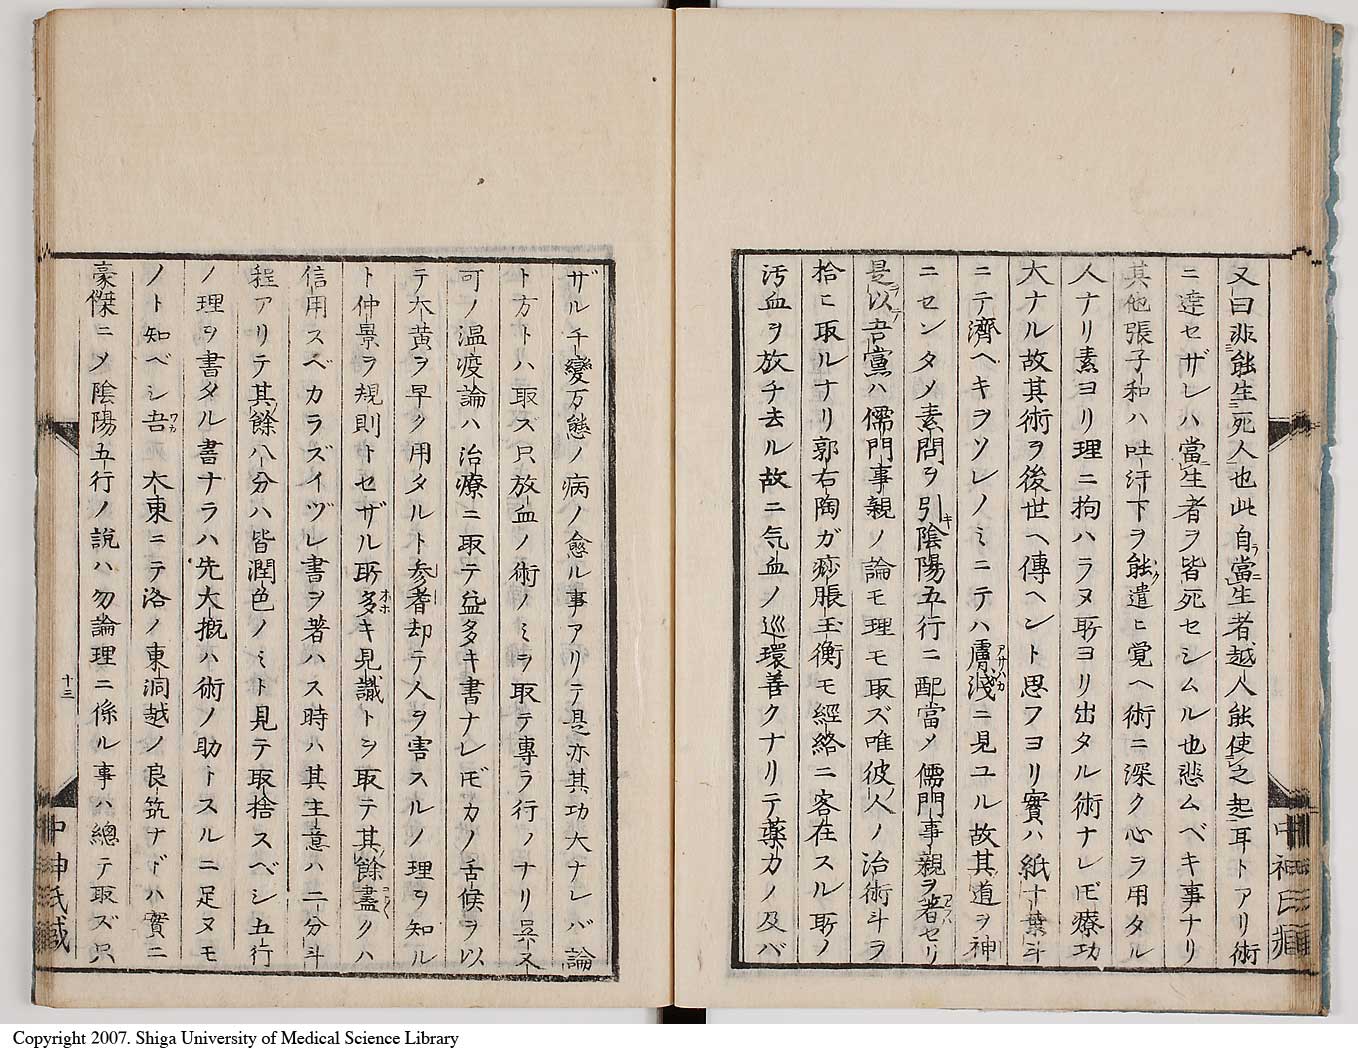 又曰非能生死人也此自當生者越人能使之起耳トアリ術
ニ達セザレハ當生者ヲ皆死セシムル也悲ムベキ事ナリ
其他張子和ハ吐汗下ヲ能遣ヒ覚ヘ術ニ深ク心ヲ用タル
人ナリ素ヨリ理ニ拘ハラヌ所ヨリ出タル術ナレ𪜈療功
大ナル故其術ヲ後世ヘ傳ヘント思フヨリ實ハ紙十葉斗
ニテ濟ヘキヲソレノミニテハ膚淺ニ見ユル故其道ヲ神
ニセンタメ素問ヲ引陰陽五行ニ配當〆儒門事親ヲ著セリ
是以吾黨ハ儒門事親ノ論モ理モ取ズ唯彼人ノ治術斗ヲ
拾ヒ取ルナリ郭右陶ガ痧脹玉衡モ經絡ニ客在スル所ノ
汚血ヲ放チ去ル故ニ気血ノ巡環善クナリテ藥力ノ及バ
ザル千變万態ノ病ノ愈ル事アリテ是亦其功大ナレバ論
ト方トハ取ズ只放血ノ術ノミヲ取テ專ラ行ノナリ呉又
可ノ温疫論ハ治療ニ取テ益多キ書ナレ𪜈カノ舌候ヲ以
テ大黄ヲ早ク用タルト参耆却テ人ヲ害スルノ理ヲ知ル
ト仲景ヲ規則トセザル所多キ見識トヲ取テ其餘盡クハ
信用スベカラズイヅレ書ヲ著ハス時ハ其主意ハ二分斗
程アリテ其餘八分ハ皆潤色ノミト見テ取捨スベシ五行
ノ理ヲ書タル書ナラハ先大概ハ術ノ助トスルニ足ヌモ
ノト知ベシ吾 大東ニテ洛ノ東洞越ノ良筑ナドハ實ニ
豪傑ニ〆陰陽五行ノ說ハ勿論理ニ係ル事ハ總テ取ズ只
十三
中神氏藏
Copyright 2007. Shiga University of Medical Science Library